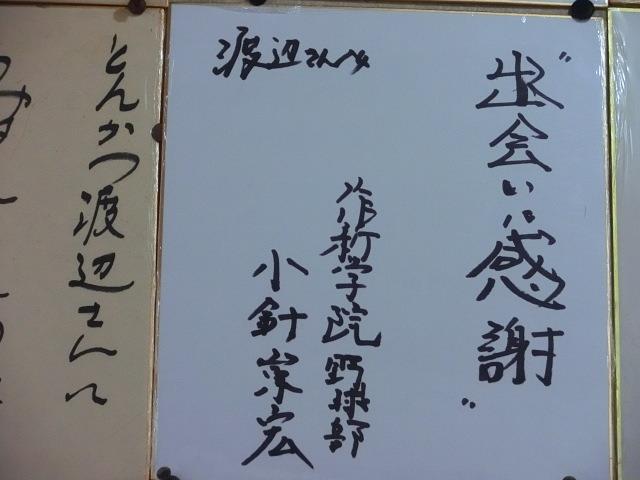 〝出会いに感謝〟
作新学院 野球部
小針崇宏
渡辺さんへ
とんかつ渡辺さんへ